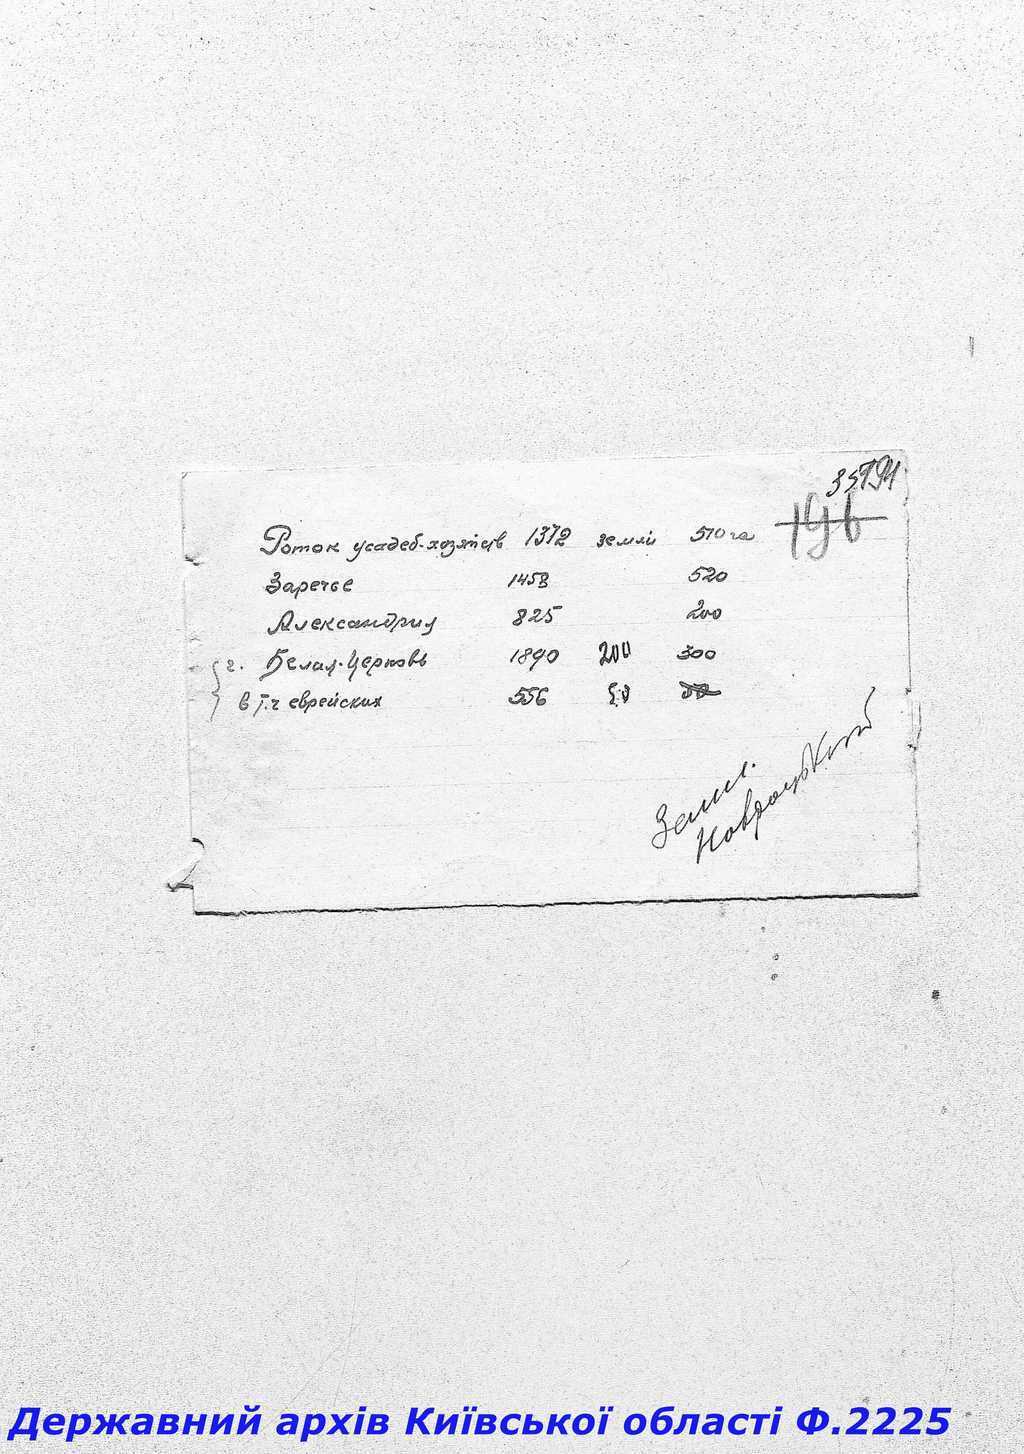 196
Роток усадеб-хозяйств 1372 земли 510 га
Заречье 1453 520
Александрия 825 200
г. Белая-Церковь 1890 200 300
в т.ч еврейских 556 50
Земл.
Державний архів Київської області Ф.2225